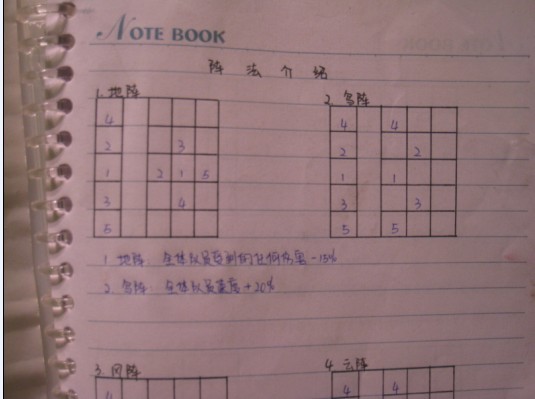 NOTE BOOK
阵法介绍
1. 地阵 2. 鸟阵
4 4 4
2 3 2 2
1 2 1 5 1 1
3 4 3 3
5 5 5
1 地阵: 全体队员受到的任何伤害-15%
2. 鸟阵: 全体队员速度+20%
3. 风阵 4. 云阵
4 4 4